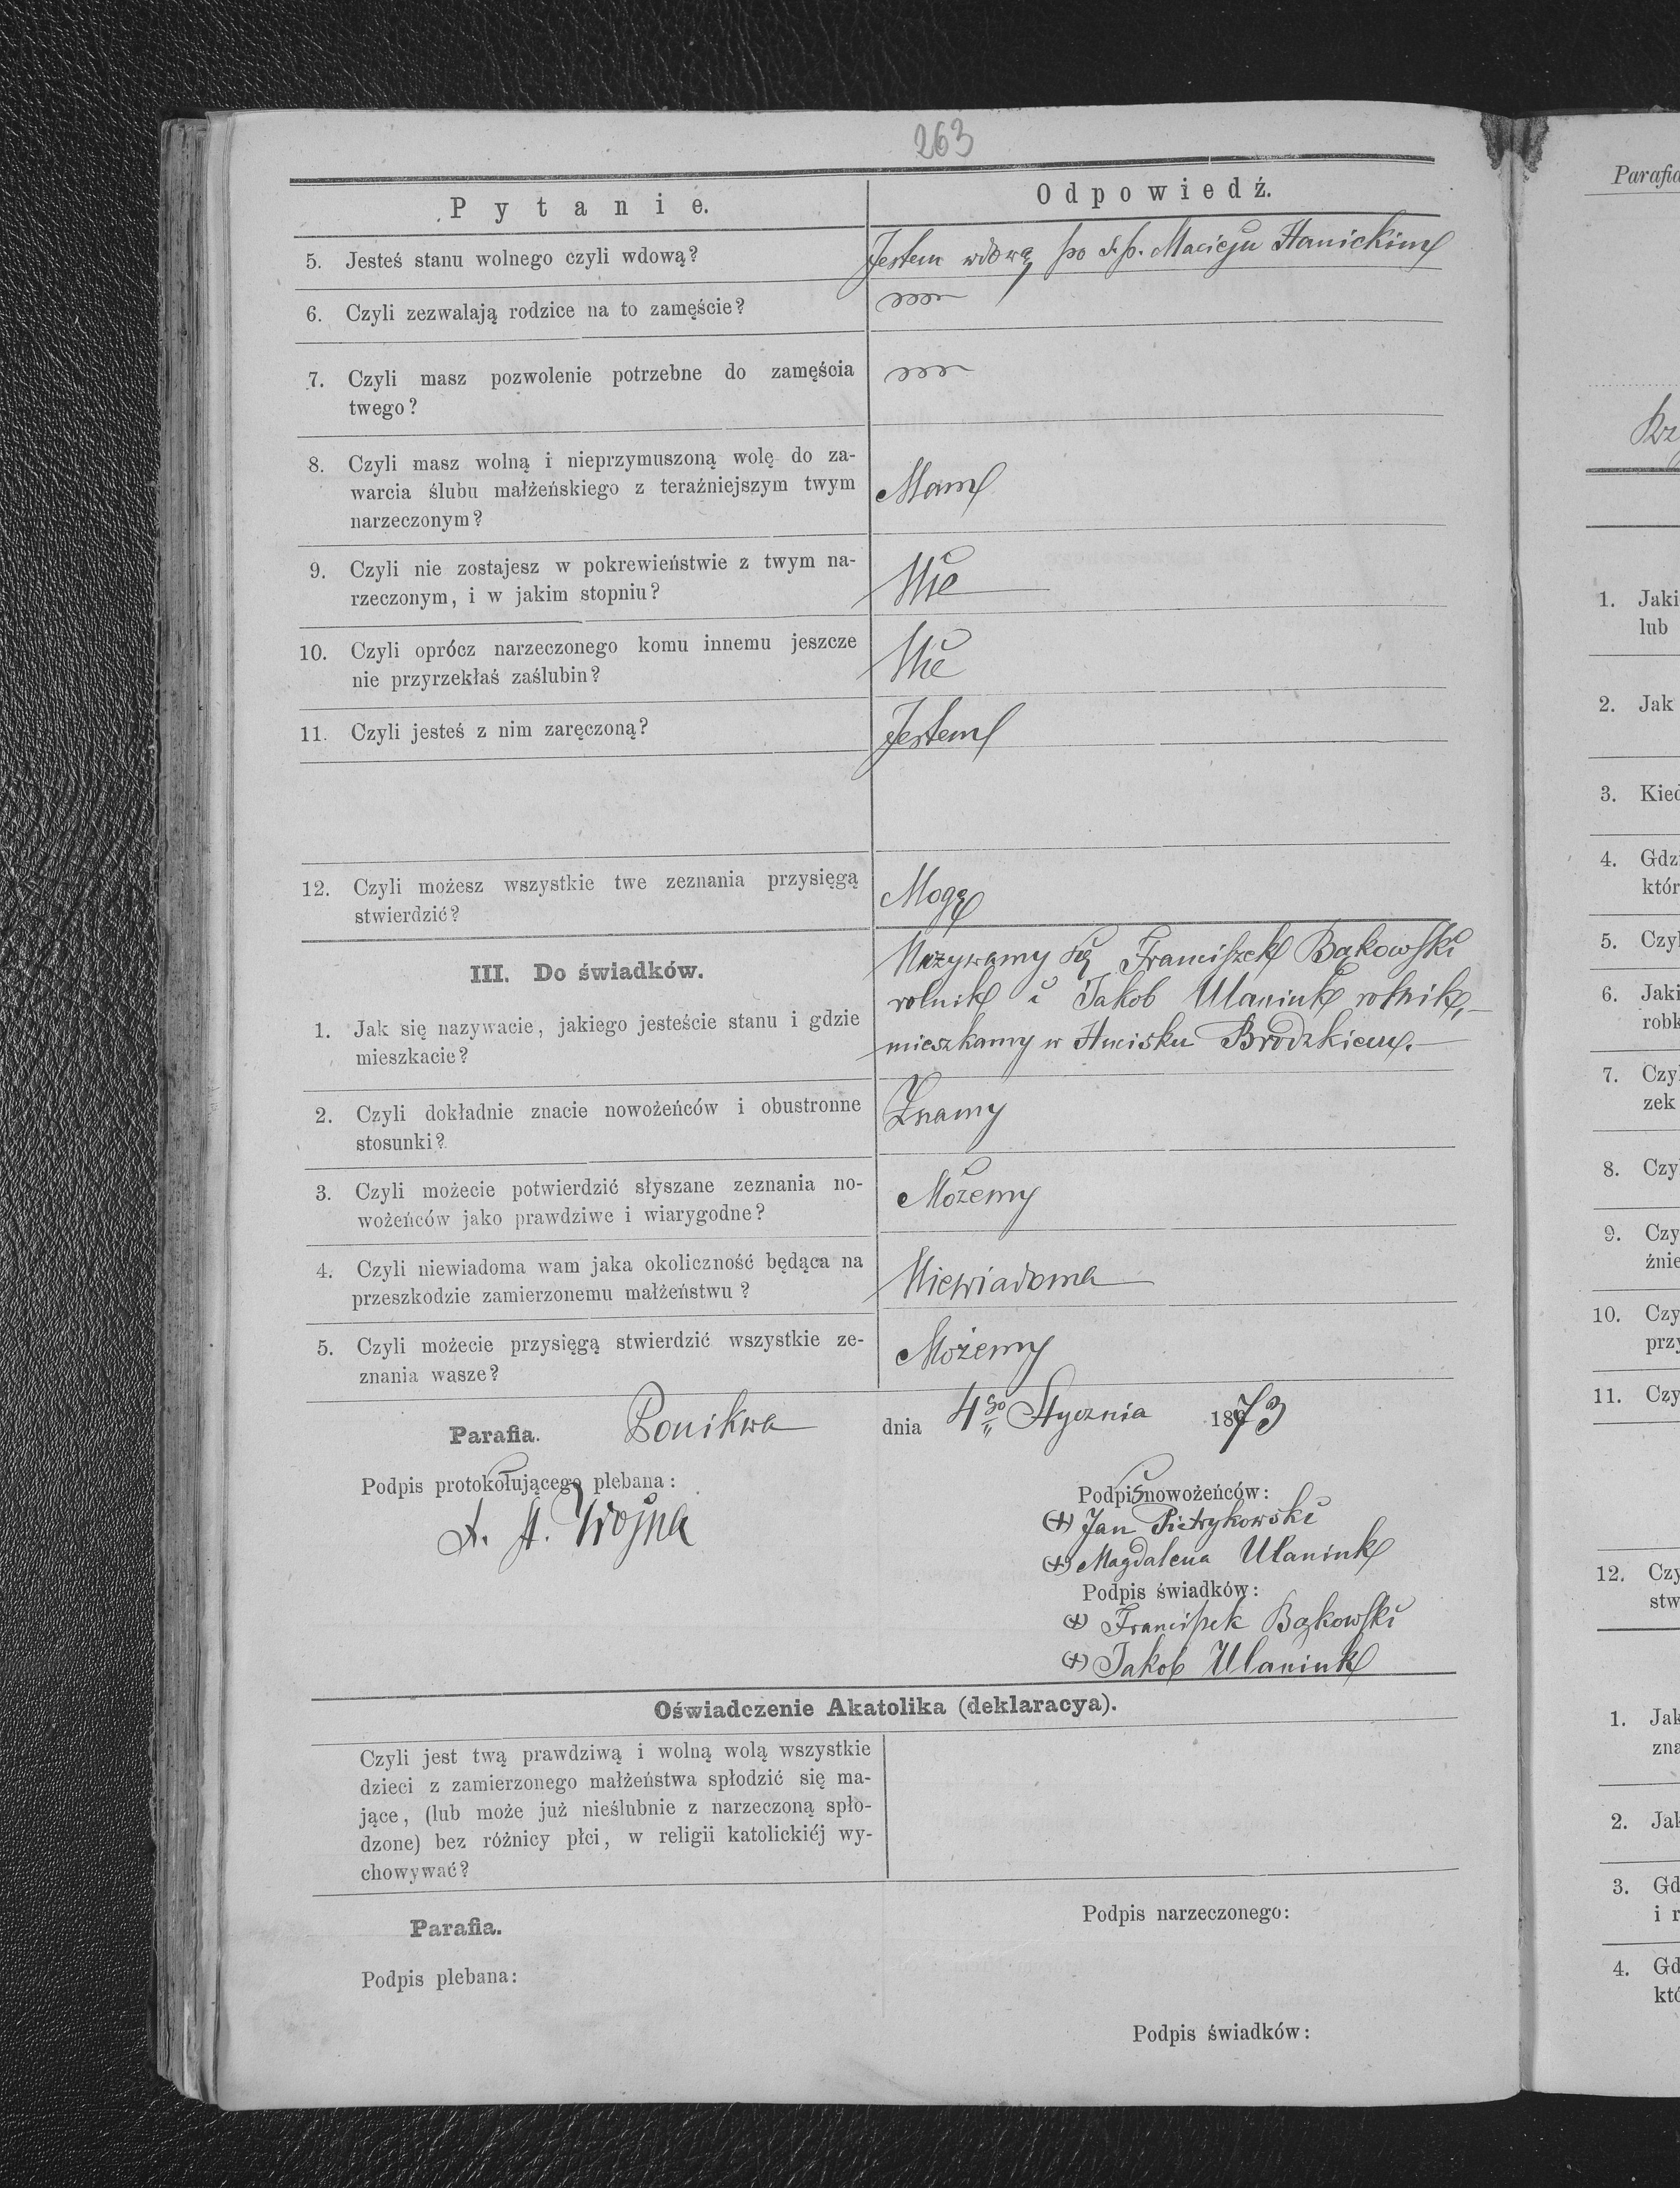 263
Pytanie.
Odpowiedź.
5. Jesteś stanu wolnego czyli wdową?
Jestem wdową po ś.p. Macieju Hanickim
6. Czyli zezwalają rodzice na to zamęście?
7. Czyli masz pozwolenie potrzebne do zamęścia
twego?
8. Czyli masz wolną i nieprzymuszoną wolę do za-
warcia ślubu małżeńskiego z teraźniejszym twym
narzeczonym?
Mam
9. Czyli nie zostajesz w pokrewieństwie z twym na-
rzeczonym, i w jakim stopniu?
Nie
10. Czyli oprócz narzeczonego komu innemu jeszcze
nie przyrzekłaś zaślubin?
Nie
11. Czyli jesteś z nim zaręczoną?
Jestem
12. Czyli możesz wszystkie twe zeznania przysięgą
stwierdzić?
Mogę
III. Do świadków.
1. Jak się nazywacie, jakiego jesteście stanu i gdzie
mieszkacie?
Nazywamy się Franciszek Bąkowski
rolnik i Jakob Ulaniuk rolnik,
mieszkamy w Hucisku Brodzkiem.
2. Czyli dokładnie znacie nowożeńców i obustronne
stosunki?
Znamy
3. Czyli możecie potwierdzić słyszane zeznania no-
wożeńców jako prawdziwe i wiarygodne?
Możemy
4. Czyli niewiadoma wam jaka okoliczność będąca na
przeszkodzie zamierzonemu małżeństwu?
Niewiadoma
5. Czyli możecie przysięgą stwierdzić wszystkie ze-
znania wasze?
Możemy
Parafia. Ponikwa dnia 4go Stycznia 1873
Podpis protokołującego plebana:
Wojna
Podpis nowożeńców:
(+) Jan Pietrykowski
(+) Magdalena Ulaniuk
Podpis świadków:
(+) Franciszek Bąkowski
(+) Jakob Ulaniuk
Oświadczenie Akatolika (deklaracya).
Czyli jest twą prawdziwą i wolną wolą wszystkie
dzieci z zamierzonego małżeństwa spłodzić się ma-
jące, (lub może już nieślubnie z narzeczoną spło-
dzone) bez różnicy płci, w religii katolickiéj wy-
chowywać?
Parafia.
Podpis plebana:
Podpis narzeczonego:
Podpis świadków:
Parafia
1. Jaki
lub
2. Jak
3. Kied
4. Gdzi
któr
5. Czyl
6. Jaki
robk
7. Czyl
zek
8. Czy
9. Czy
źnie
10. Czy
przy
11. Czy
12. Czy
stw
1. Jak
zna
2. Jak
3. Gd
i r
4. Gd
któ